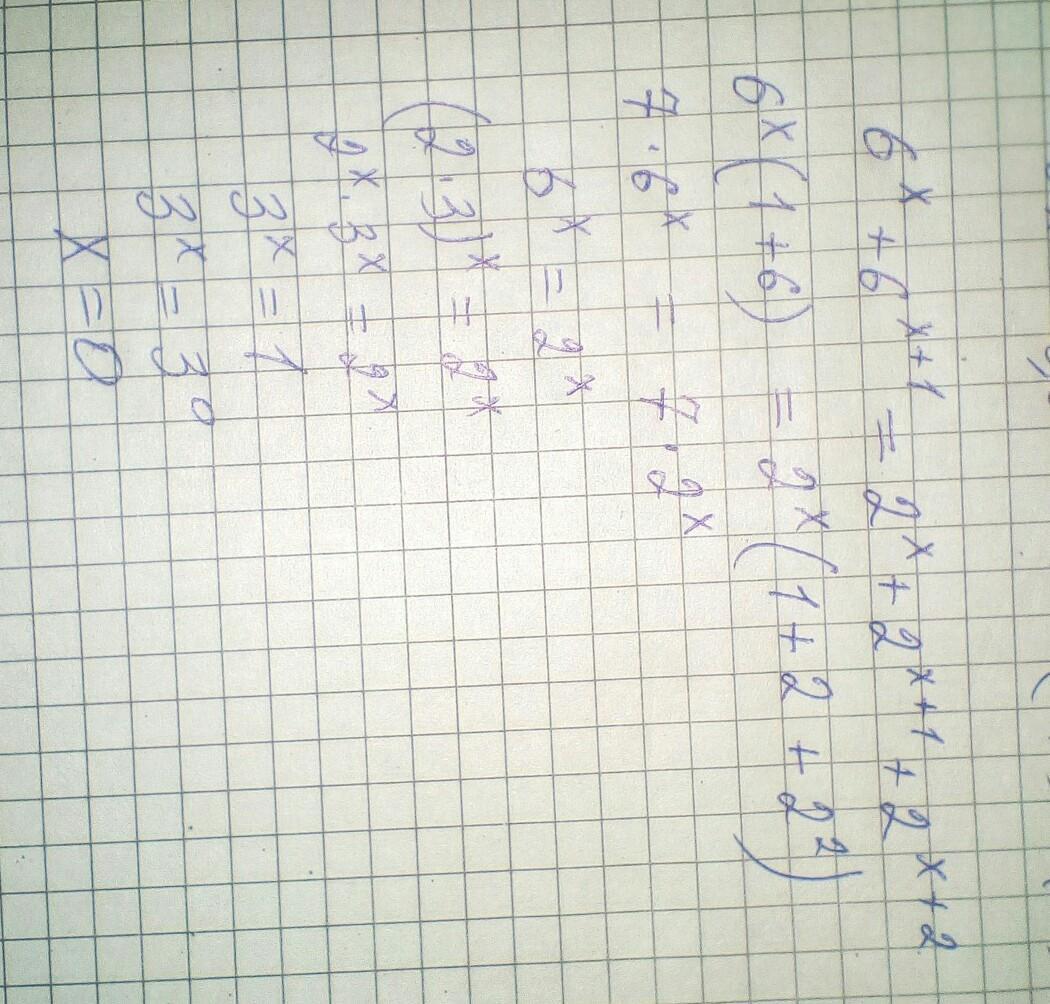 6^x + 6^{x+1} = 2^x + 2^{x+1} + 2^{x+2}
6^x (1+6) = 2^x (1+2+2^2)
7·6^x = 7·2^x
6^x = 2^x
(2·3)^x = 2^x
2^x·3^x = 2^x
3^x = 1
3^x = 3^0
x = 0